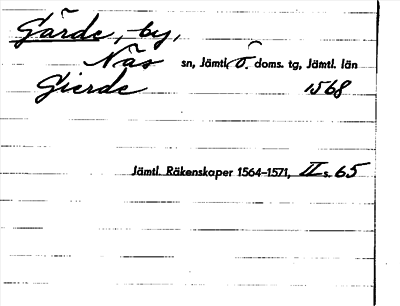 Gärde, by,
Näs sn, Jämtl. Ö. doms. tg, Jämtl. län
Gierde 1568
Jämtl. Räkenskaper 1564-1571, II s. 65